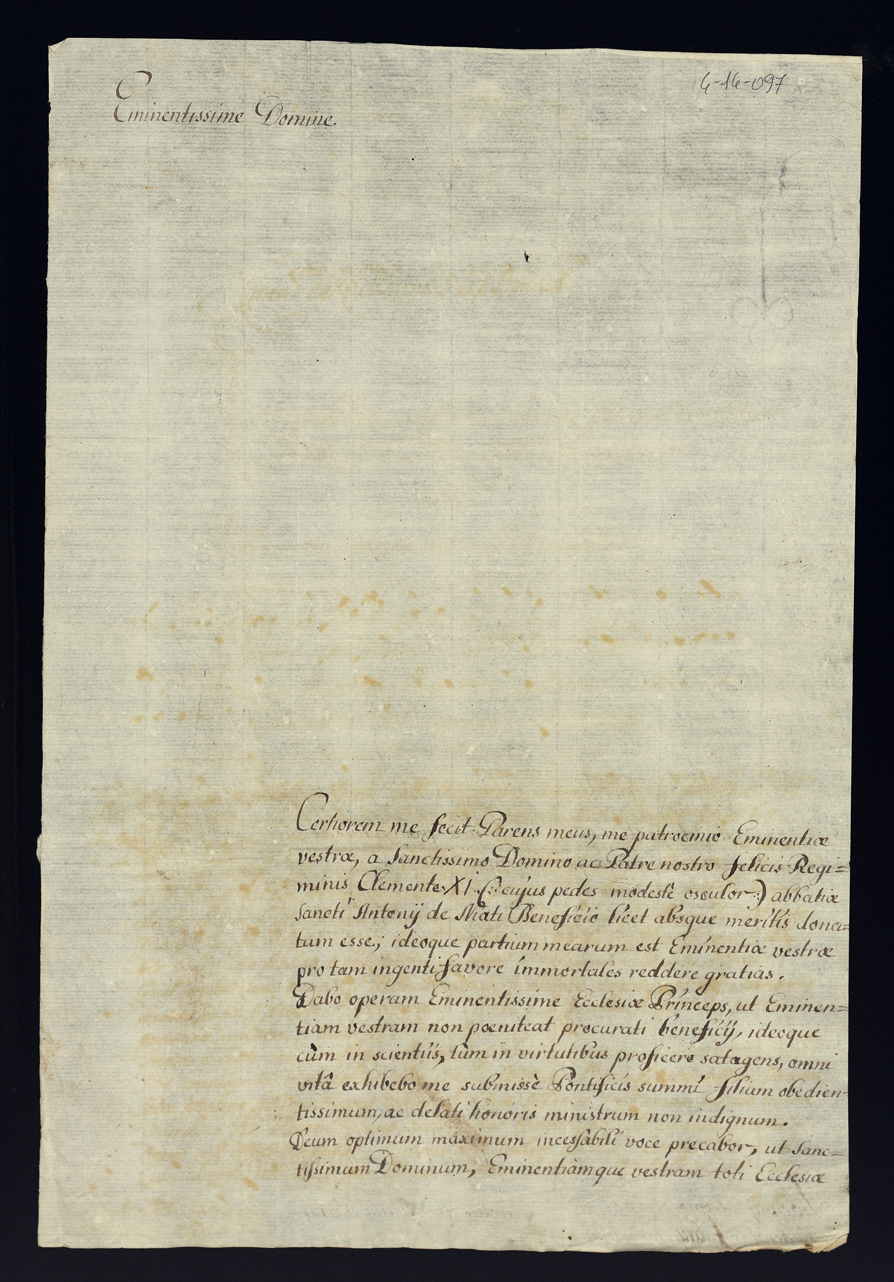 6-16-097
Eminentissime Domine.
Certiorem me fecit Parens meus, me patrocinio Eminentiæ
vestræ, a Sanctissimo Domino ac Patre nostro felicis Regi=
minis Clemente XI (: cujus pedes modestè osculor :) abbatiæ
Sancti Antonij de Mati Beneficio licet absque meritis dona=
tum esse; ideoque partium mearum est Eminentiæ vestræ
pro tam ingenti favore immortales reddere gratias.
Dabo operam Eminentissime Ecclesiæ Princeps, ut Eminen=
tiam vestram non pœniteat procurati beneficij, ideoque
cùm in scientiis, tùm in virtutibus proficere satagens, omni
vitâ exhibebo me submissè Pontificis summi filium obedien=
tissimum, ac delati honoris ministrum non indignum.
Deum optimum maximum incessabili voce precabor, ut Sanc=
tissimum Dominum, Eminentiamque vestram toti Ecclesiæ